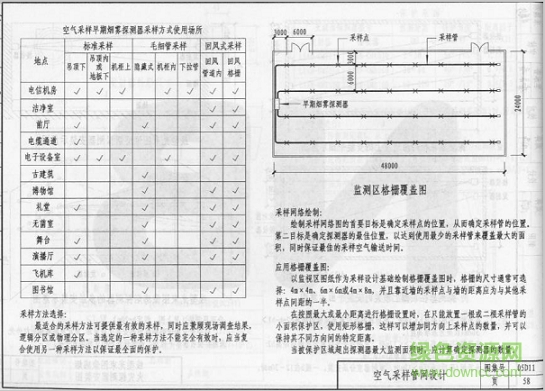 空气采样早期烟雾探测器采样方式使用场所
地点
标准采样
毛细管采样
回风式采样
吊顶下
吊顶内或地板下
机柜上
隐藏式
机柜内
下拉管
回风管道内
回风格栅
电信机房 ✓ ✓ ✓ ✓ ✓ ✓
洁净室 ✓ ✓
前厅 ✓ ✓ ✓
电缆通道 ✓
电子设备室 ✓ ✓ ✓ ✓ ✓ ✓
古建筑 ✓
博物馆 ✓ ✓ ✓
礼堂 ✓ ✓ ✓
无菌室 ✓ ✓
舞台 ✓ ✓ ✓
演播厅 ✓ ✓ ✓
飞机库 ✓
图书馆 ✓ ✓ ✓
采样方法选择:
最适合的采样方法可提供最有效的采样,同时应兼顾现场调查结果、
逻辑分区或物理分区。当选定的一种采样方法不能完全有效时,应当复
合使用另一种采样方法以保证最全面的保护。
3000
6000
采样点
采样管
3000
6000
早期烟雾探测器
24000
48000
监测区格栅覆盖图
采样网络绘制:
绘制采样网络图的首要目标是确定采样点的位置,从而确定采样管的位置。
第二目标是确定探测器的最佳位置,以达到使用最少的采样管来覆盖最大的面
积,同时保证最佳的采样空气输送时间。
应用格栅覆盖图:
以监视区图纸作为采样设计基础绘制格栅覆盖图时,格栅的尺寸通常可选
择:4m×4m、6m×6m或4m×8m,并且靠近墙的采样点与墙的距离应为与其他采
样点间距的一半。
在按照最大或最小距离进行格栅设置时,在只能放置一根或二根采样管的
小面积保护区,使用矩形格栅,这样可以增加同方向上采样点的数量,并可以
保持其不同方向间的特定距离。
当被保护区域超出探测器最大监测面积时,应计算确定探测器的数量。
空气采样管网设计
图集号
05D11
页
58
绿色资源网
www.downcc.com